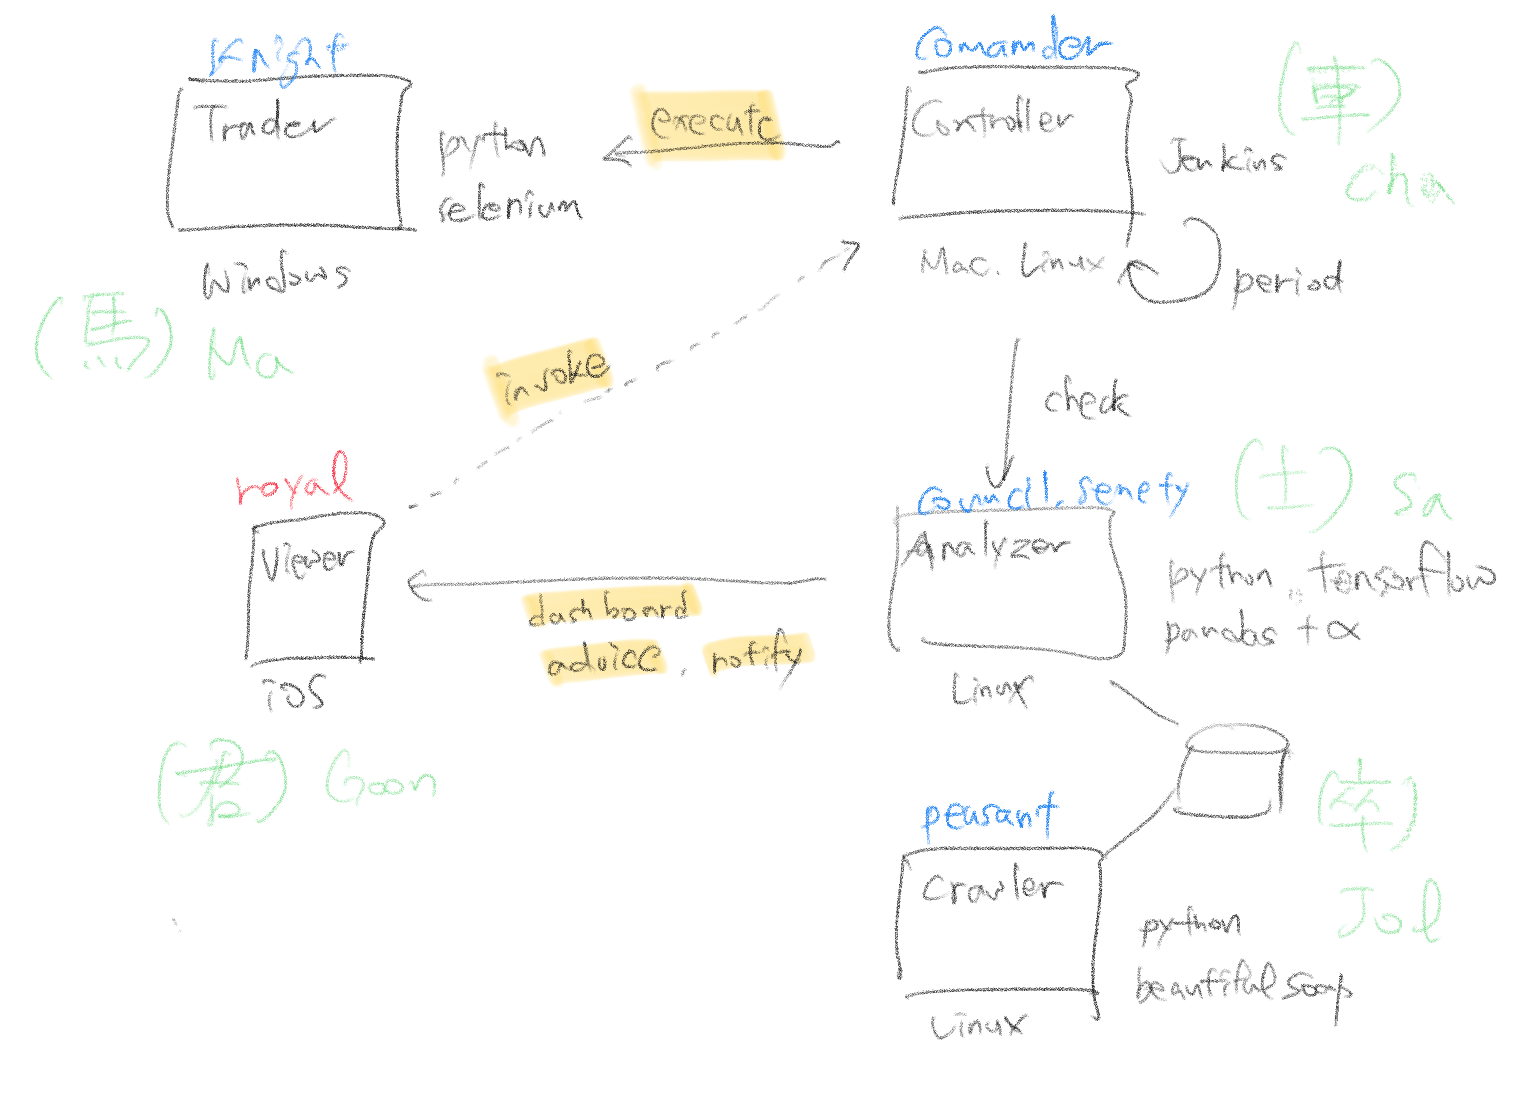 Knight
Trader
python
selenium
Windows
(馬) Ma
execute
Comamder
Controller
Jenkins
(車)
cha
Mac. Linux
period
invoke
check
royal
Viewer
iOS
(君) Goon
dashboard
advice, notify
Council. senety
Analyzer
(士) Sa
python, tensorflow
pandas + α
Linux
peasant
Crawler
(卒)
Jol
python
beautiful soap
Linux